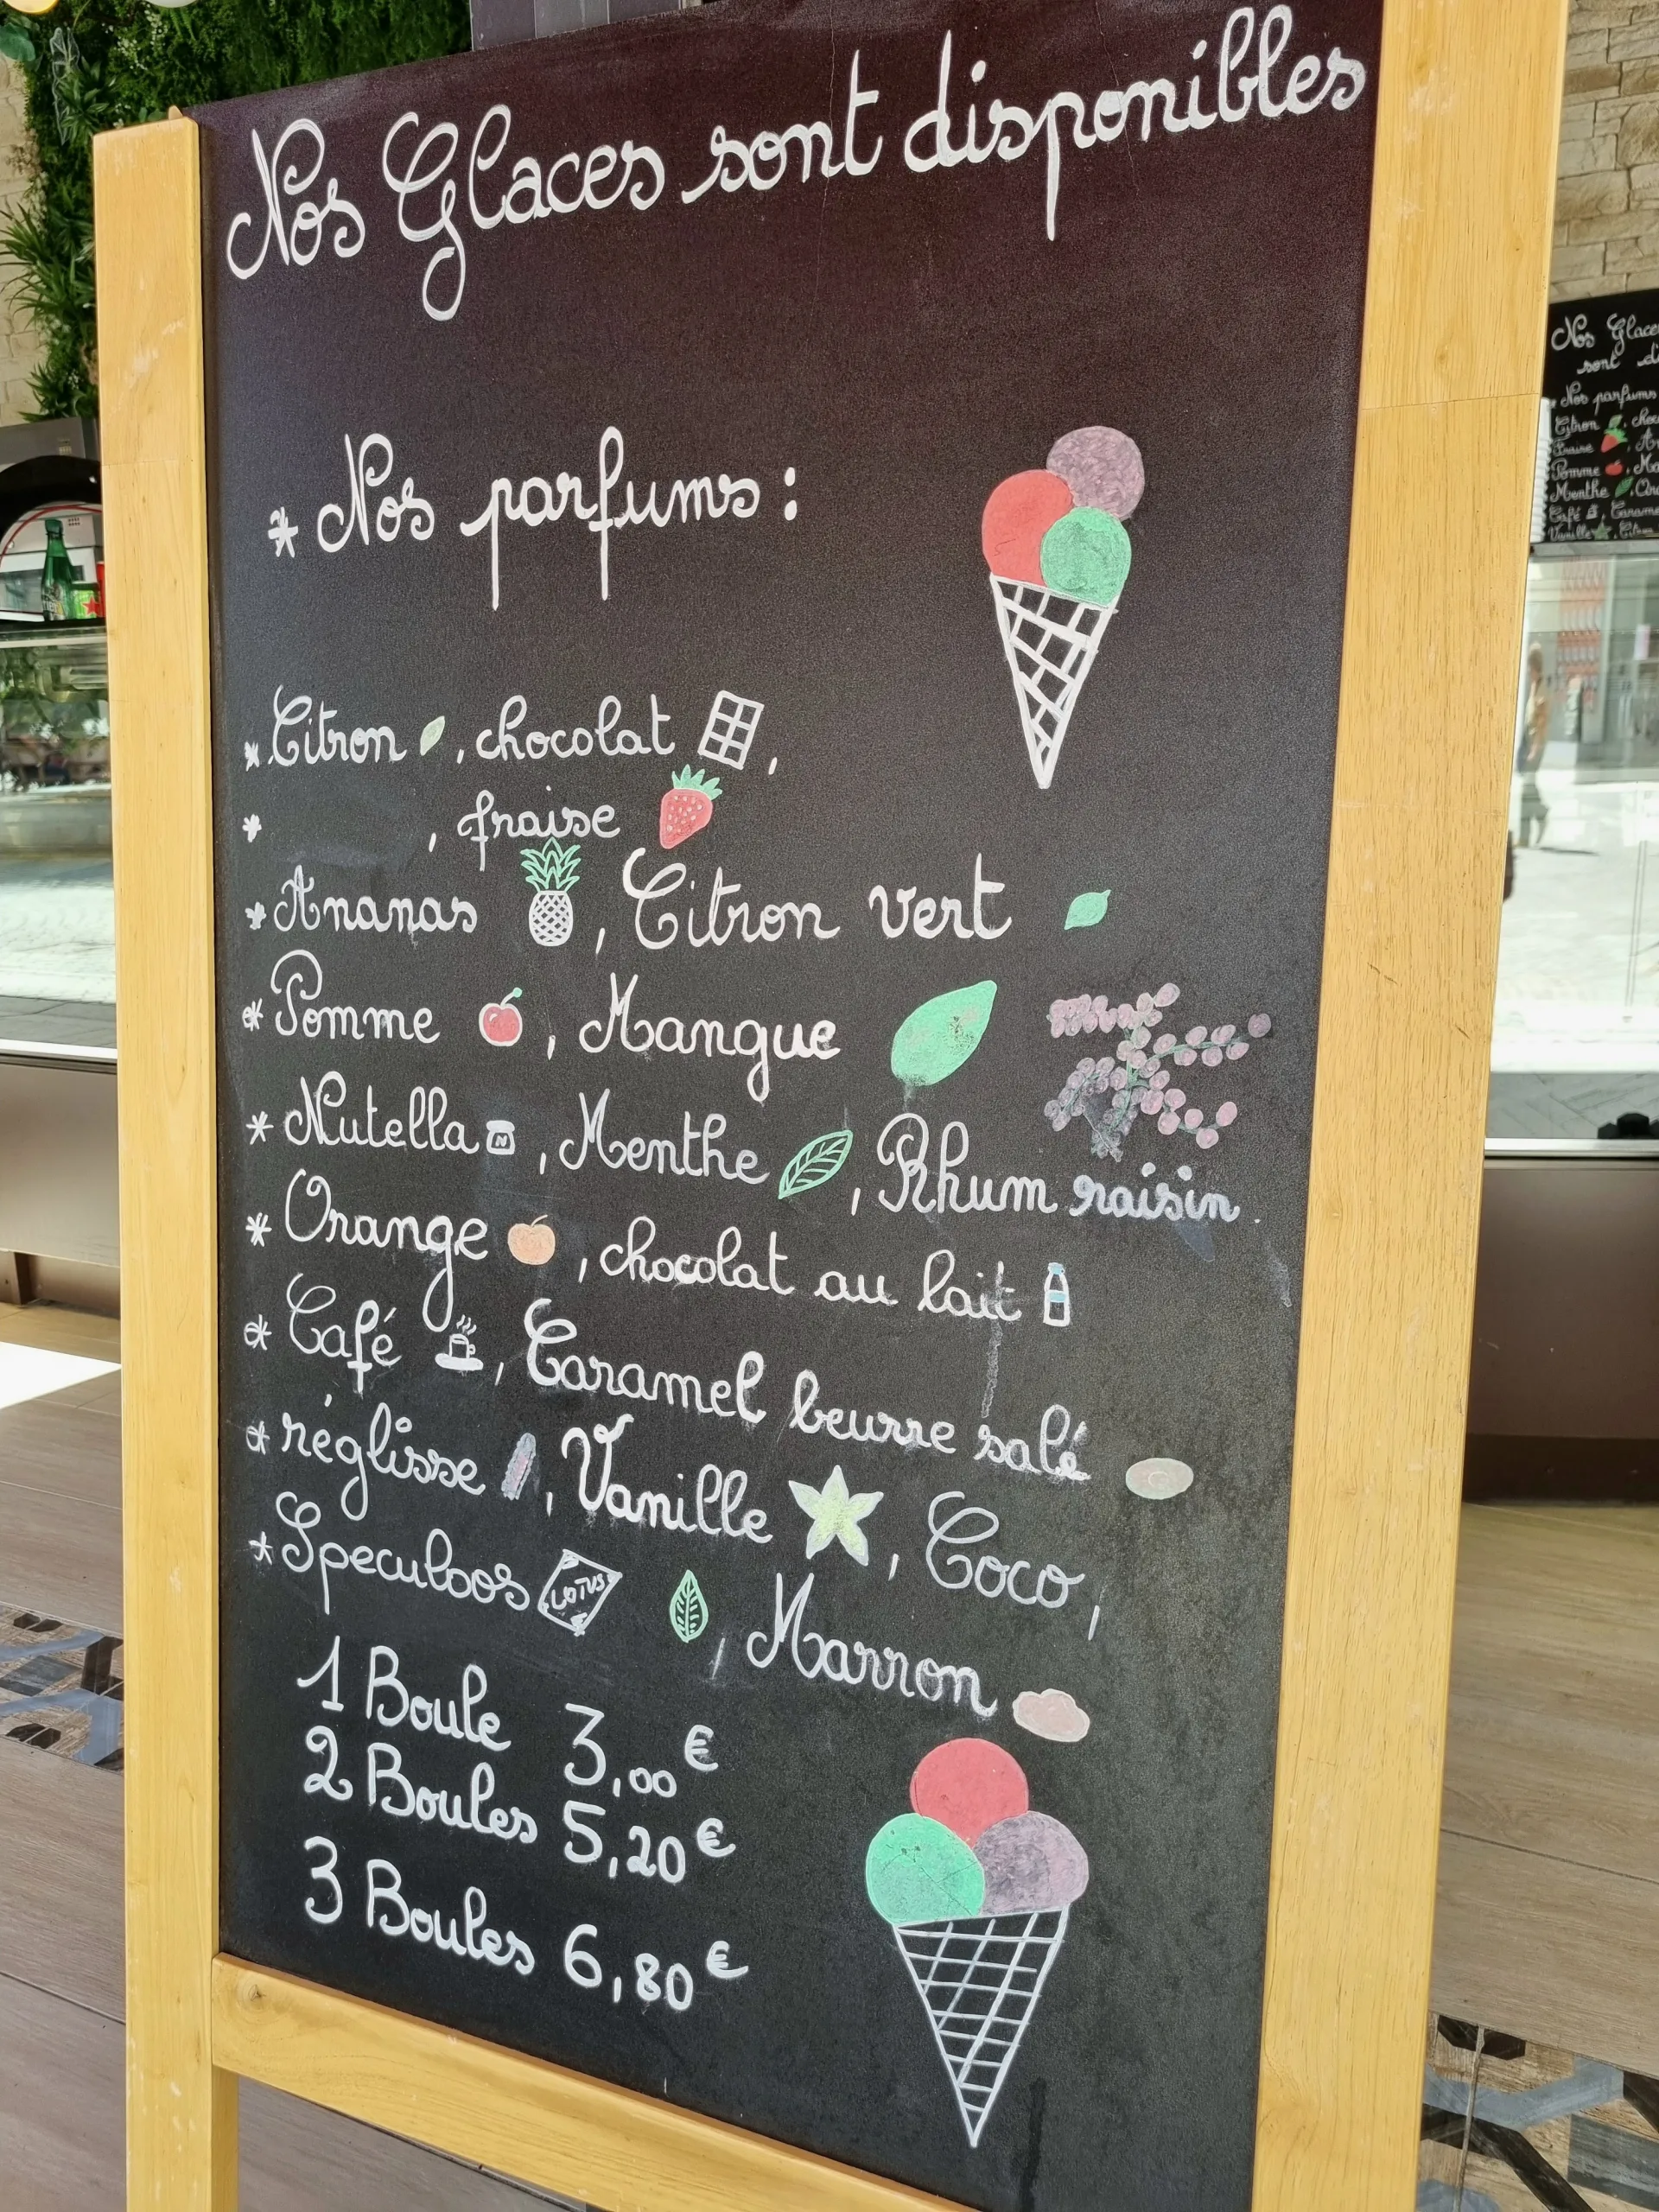 Nos Glaces sont disponibles
* Nos parfums :
* Citron , chocolat ,
* , fraise
* Ananas , Citron vert
* Pomme , Mangue
* Nutella N , Menthe , Rhum raisin .
* Orange , chocolat au lait
* Café , Caramel beurre salé
* réglisse , Vanille , Coco ,
* Speculoos LOTUS , Marron
1 Boule 3,00 €
2 Boules 5,20 €
3 Boules 6,80 €
Nos Glace
sont di
Nos parfums
Citron , choc
Fraise , A
Pomme , Ma
Menthe
Café , Carame
Vanille , Citron